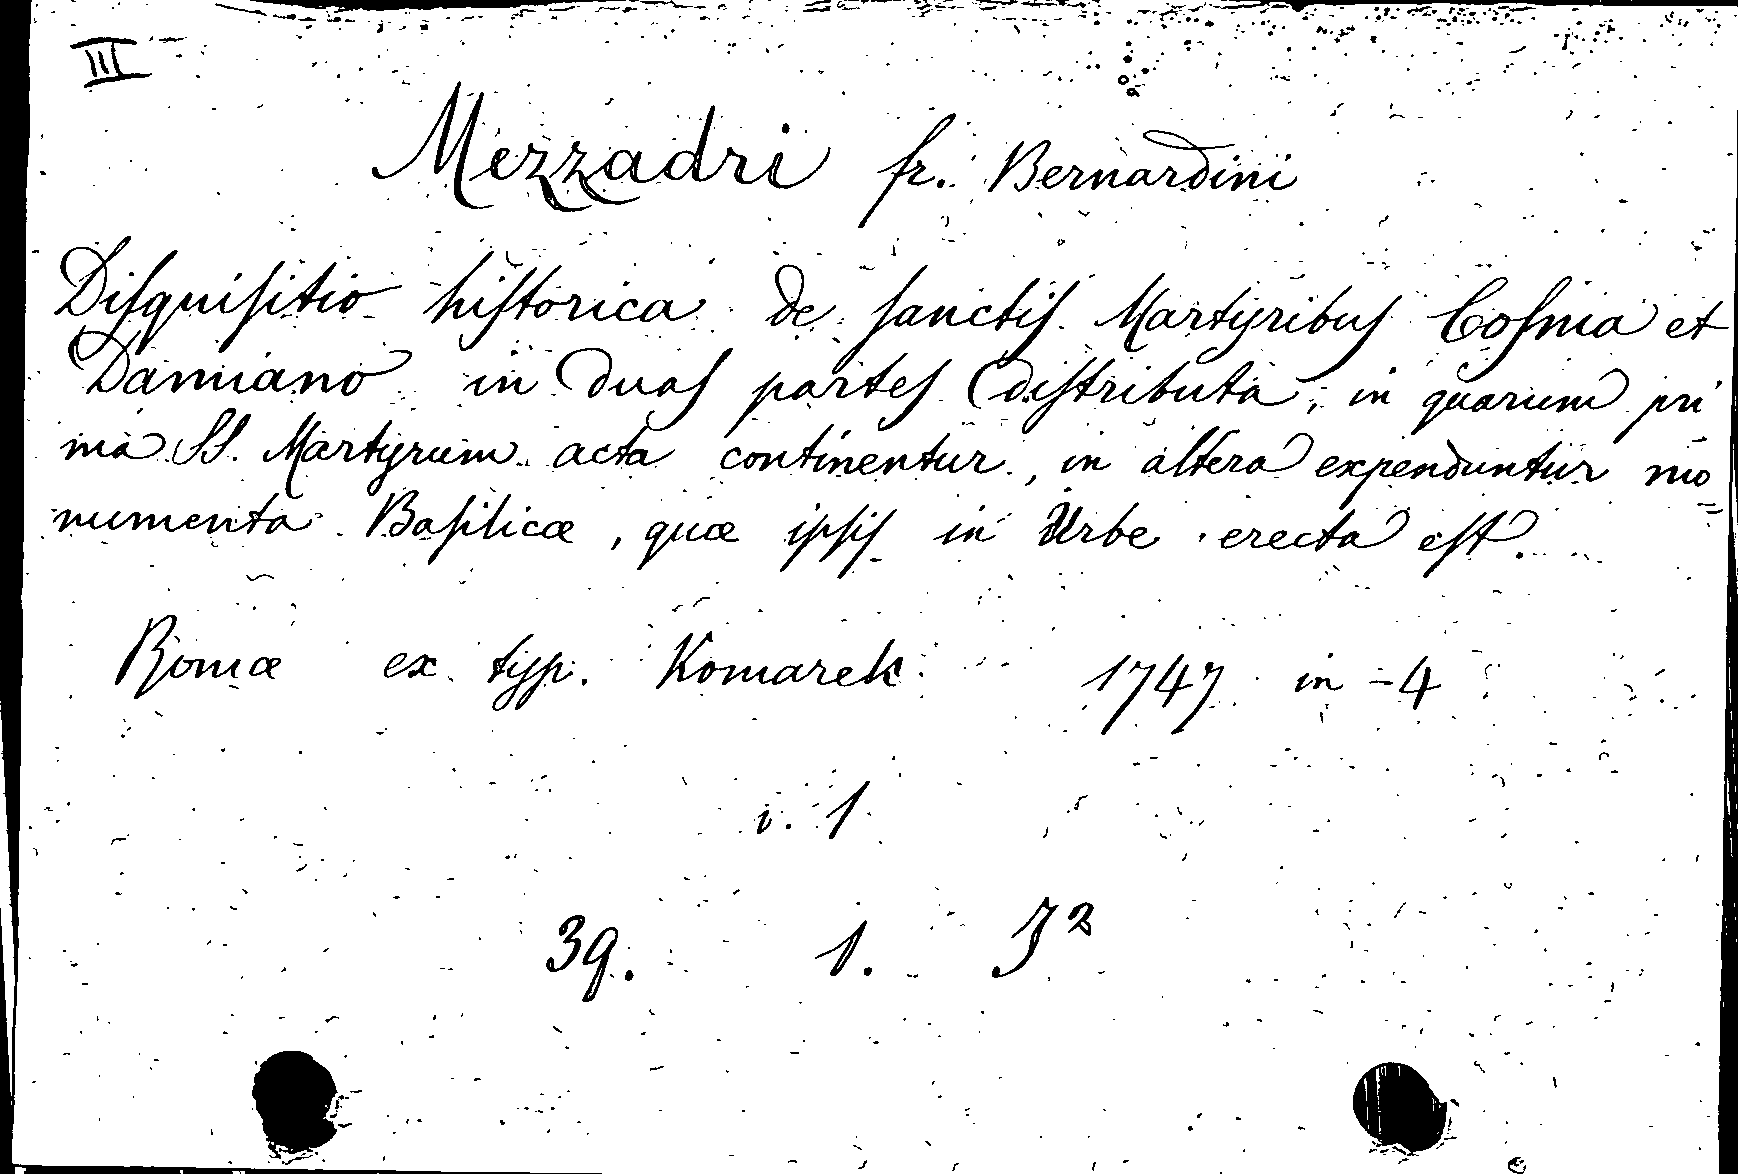 III
Mezzadri fr. Bernardini
Disquisitio historica de sanctis Martyribus Cosma et
Damiano in duas partes distributa, in quarum pri
ma SS. Martyrum acta continentur, in altera expenduntur mo
numenta Basilicæ, quæ ipsis in Urbe erecta est.
Romæ ex typ. Komarek 1747 in-4
v. 1
39. 1. J²